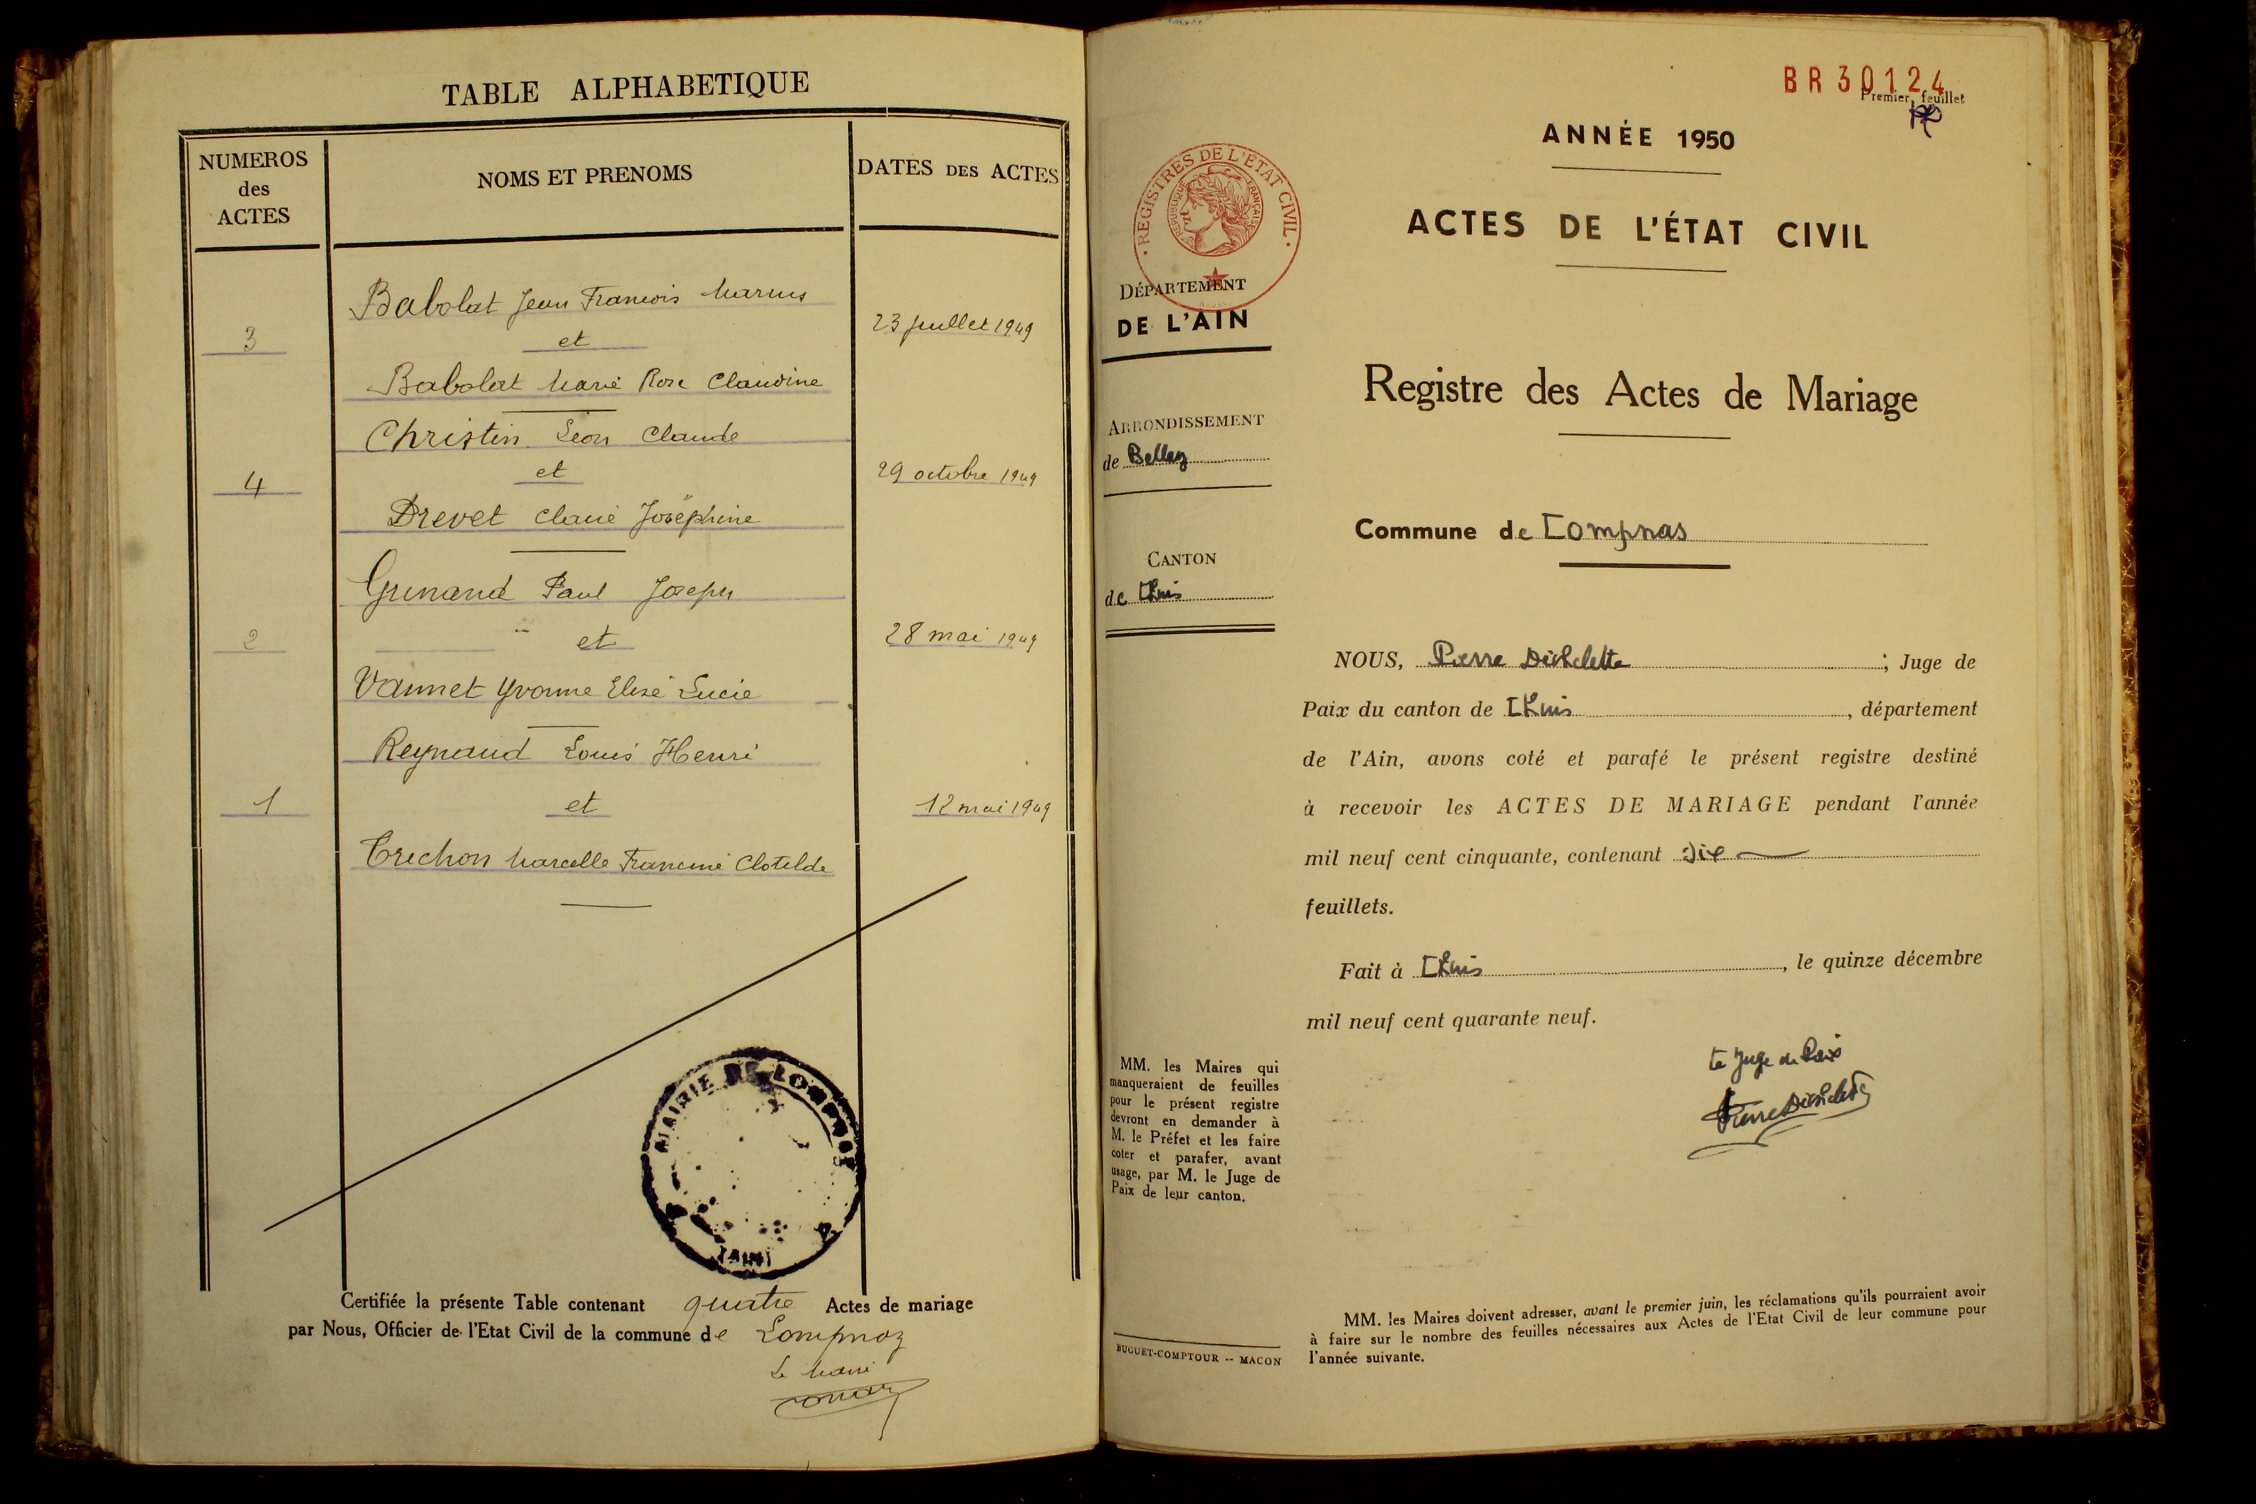 TABLE ALPHABETIQUE
NUMEROS
des
ACTES
NOMS ET PRENOMS
DATES DES ACTES
Babolat Jean François Marius
3
et
23 juillet 1949
Babolat Marie Rose Claudine
Christin Léon Claude
4
et
29 octobre 1949
Drevet Joséphine
Paul Joseph
2
et
28 mai 1949
Vannet Yvonne Elise Lucie
Reynaud Louis Henri
1
et
12 mai 1949
Trechon Marcelle Francine Clotilde
MAIRIE DE LOMPNAZ
(AIN)
Certifiée la présente Table contenant quatre Actes de mariage
par Nous, Officier de l'Etat Civil de la commune de Lompnaz
Le Maire
BR 30124
Premier feuillet
ANNÉE 1950
REGISTRES DE L'ETAT CIVIL
REPUBLIQUE FRANÇAISE
ACTES DE L'ÉTAT CIVIL
DÉPARTEMENT
DE L'AIN
Registre des Actes de Mariage
ARRONDISSEMENT
de Belley
Commune de Lompnas
CANTON
de Lhuis
NOUS, Pierre Déchelette ; Juge de
Paix du canton de Lhuis, département
de l'Ain, avons coté et parafé le présent registre destiné
à recevoir les ACTES DE MARIAGE pendant l'année
mil neuf cent cinquante, contenant Dix
feuillets.
Fait à Lhuis, le quinze décembre
mil neuf cent quarante neuf.
Le Juge de Paix
Pierre Déchelette
MM. les Maires qui
manqueraient de feuilles
pour le présent registre
devront en demander à
M. le Préfet et les faire
coter et parafer, avant
usage, par M. le Juge de
Paix de leur canton.
BUGUET-COMPTOUR -- MACON
MM. les Maires doivent adresser, avant le premier juin, les réclamations qu'ils pourraient avoir
à faire sur le nombre des feuilles nécessaires aux Actes de l'Etat Civil de leur commune pour
l'année suivante.